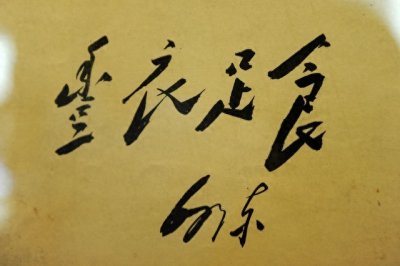 豐衣足食
毛泽东